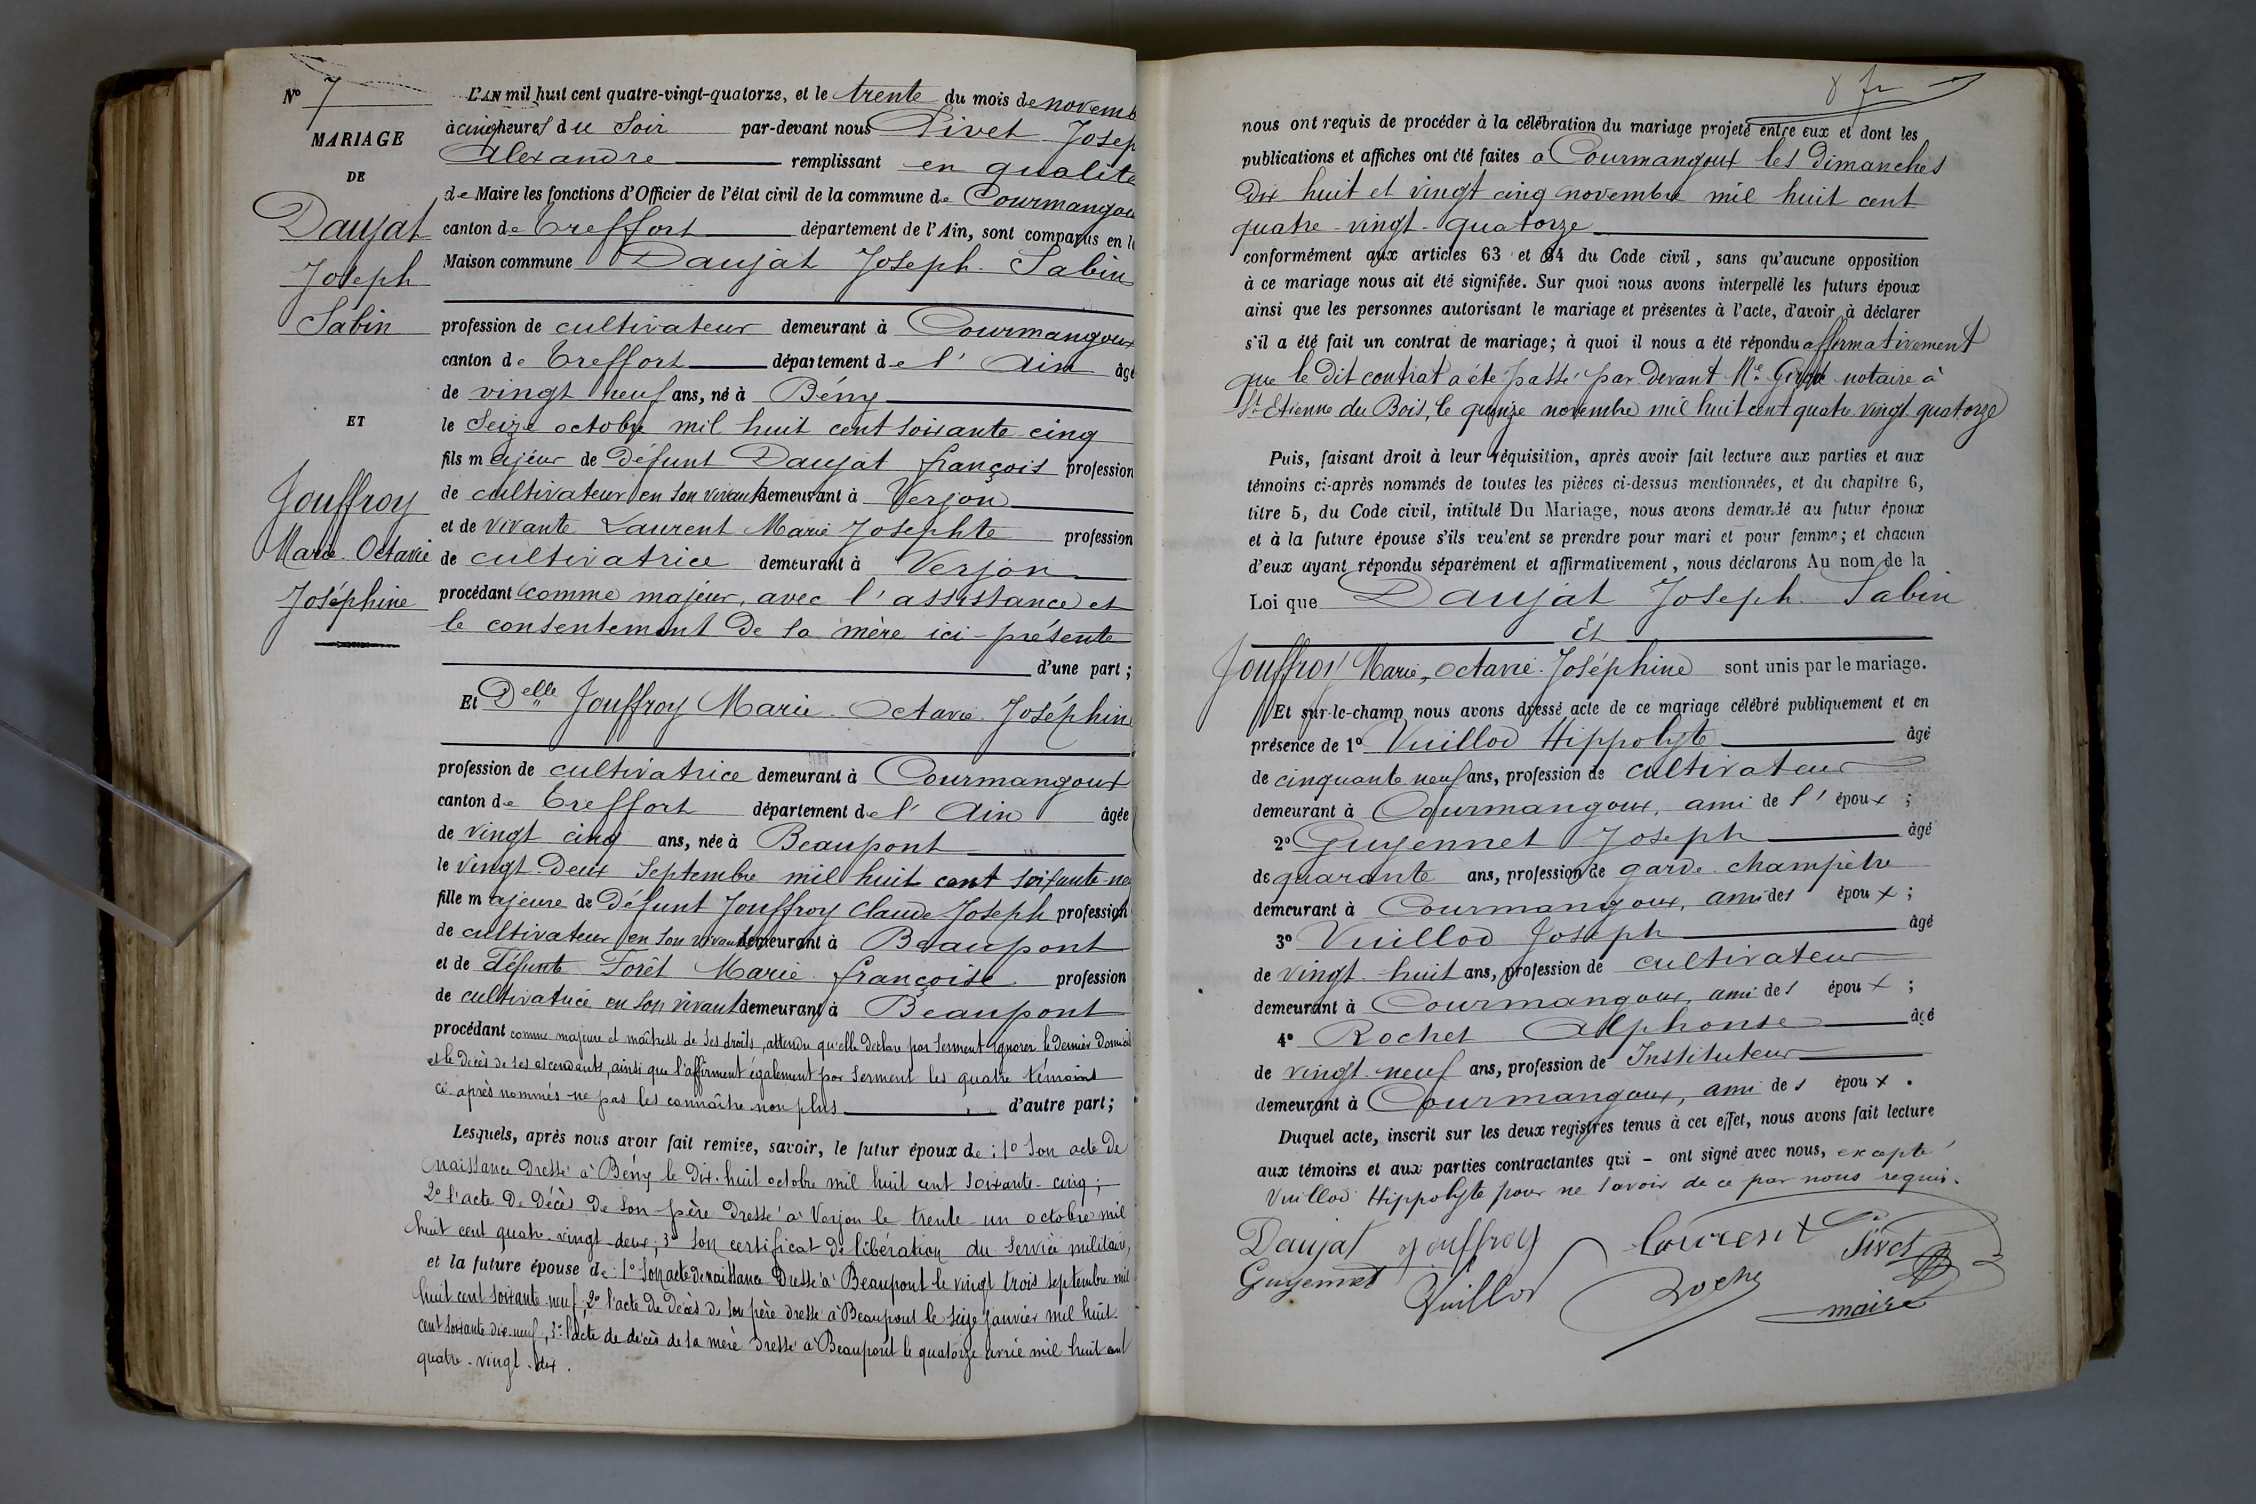 N° 7
MARIAGE
DE
Daujat
Joseph
Sabin
ET
Jouffroy
Marie Octavie
Joséphine
L'AN mil huit cent quatre-vingt-quatorze, et le trente du mois de novemb
à cinq heures du soir par-devant nous Pivet Josep
Alexandre remplissant en qualité
de Maire les fonctions d'Officier de l'état civil de la commune de Courmangou
canton de Treffort département de l'Ain, sont comparus en l
Maison commune Daujat Joseph Sabin
profession de cultivateur demeurant à Courmangoux
canton de Treffort département de l'Ain âgé
de vingt neuf ans, né à Bény
le seize octobre mil huit cent soixante cinq
fils majeur de défunt Daujat françois profession
de cultivateur en son vivant demeurant à Verjon
et de vivante Laurent Marie Josephte profession
de cultivatrice demeurant à Verjon
procédant comme majeur, avec l'assistance et
le consentement de sa mère ici-présente
d'une part ;
Et Delle Jouffroy Marie Octavie Joséphine
profession de cultivatrice demeurant à Courmangoux
canton de Treffort département de l'Ain âgée
de vingt cinq ans, née à Beaupont
le vingt-deux septembre mil huit cent soixante-ne
fille majeure de défunt Jouffroy Claude Joseph profession
de cultivateur en son vivant demeurant à Beaupont
et de défunte Forêt Marie françoise profession
de cultivatrice en son vivant demeurant à Beaupont
procédant comme majeure et maîtresse de ses droits, attendu qu'elle déclare par serment ignorer le dernier domici
et le décès de ses ascendants, ainsi que l'affirment également par serment les quatre témoins
ci-après nommés ne pas les connaître non plus d'autre part ;
Lesquels, après nous avoir fait remise, savoir, le futur époux de : 1° son acte de
naissance dressé à Bény le dix-huit octobre mil huit cent soixante-cinq ;
2° l'acte de décès de son père dressé à Verjon le trente-un octobre mil
huit cent quatre-vingt-deux ; 3° son certificat de libération du service militaire,
et la future épouse de : 1° son acte de naissance dressé à Beaupont le vingt trois septembre mil
huit cent soixante neuf, 2° l'acte de décès de son père dressé à Beaupont le seize janvier mil huit
cent soixante dix-neuf, 3° l'acte de décès de sa mère dressé à Beaupont le quatorze mil huit cent
quatre-vingt-dix.
8 fr
nous ont requis de procéder à la célébration du mariage projeté entre eux et dont les
publications et affiches ont été faites à Courmangoux les dimanches
dix huit et vingt cinq novembre mil huit cent
quatre-vingt-quatorze
conformément aux articles 63 et 64 du Code civil, sans qu'aucune opposition
à ce mariage nous ait été signifiée. Sur quoi nous avons interpellé les futurs époux
ainsi que les personnes autorisant le mariage et présentes à l'acte, d'avoir à déclarer
s'il a été fait un contrat de mariage ; à quoi il nous a été répondu affirmativement
que le dit contrat a été passé par devant Me notaire à
St Etienne du Bois, le quinze novembre mil huit cent quatre vingt quatorze
Puis, faisant droit à leur réquisition, après avoir fait lecture aux parties et aux
témoins ci-après nommés de toutes les pièces ci-dessus mentionnées, et du chapitre 6,
titre 5, du Code civil, intitulé Du Mariage, nous avons demandé au futur époux
et à la future épouse s'ils veulent se prendre pour mari et pour femme ; et chacun
d'eux ayant répondu séparément et affirmativement, nous déclarons Au nom de la
Loi que Daujat Joseph Sabin
Et
Jouffroy Marie, Octavie Joséphine sont unis par le mariage.
Et sur-le-champ nous avons dressé acte de ce mariage célébré publiquement et en
présence de 1° Vuillod Hippolyte âgé
de cinquante neuf ans, profession de cultivateur
demeurant à Courmangoux, ami de l'époux ;
2° Guyennet Joseph âgé
de quarante ans, profession de garde-champêtre
demeurant à Courmangoux, ami des époux ;
3° Vuillod Joseph âgé
de vingt-huit ans, profession de cultivateur
demeurant à Courmangoux, ami des époux ;
4° Rochet Alphonse âgé
de vingt-neuf ans, profession de Instituteur
demeurant à Courmangoux, ami des époux.
Duquel acte, inscrit sur les deux registres tenus à cet effet, nous avons fait lecture
aux témoins et aux parties contractantes qui - ont signé avec nous, excepté
Vuillod Hippolyte pour ne savoir de ce par nous requis.
Daujat jouffroy Laurent Pivet
Guyennet Vuillod Rochet
maire